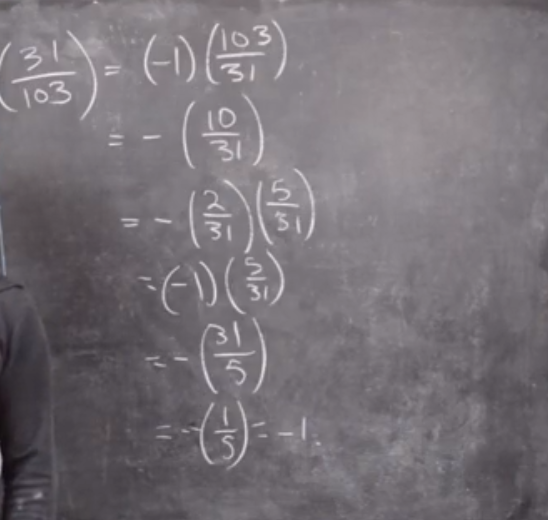 (31/103) = (-1)(103/31)
= - (10/31)
= - (2/31)(5/31)
= (-1)(5/31)
= - (31/5)
= -(1/5) = -1.